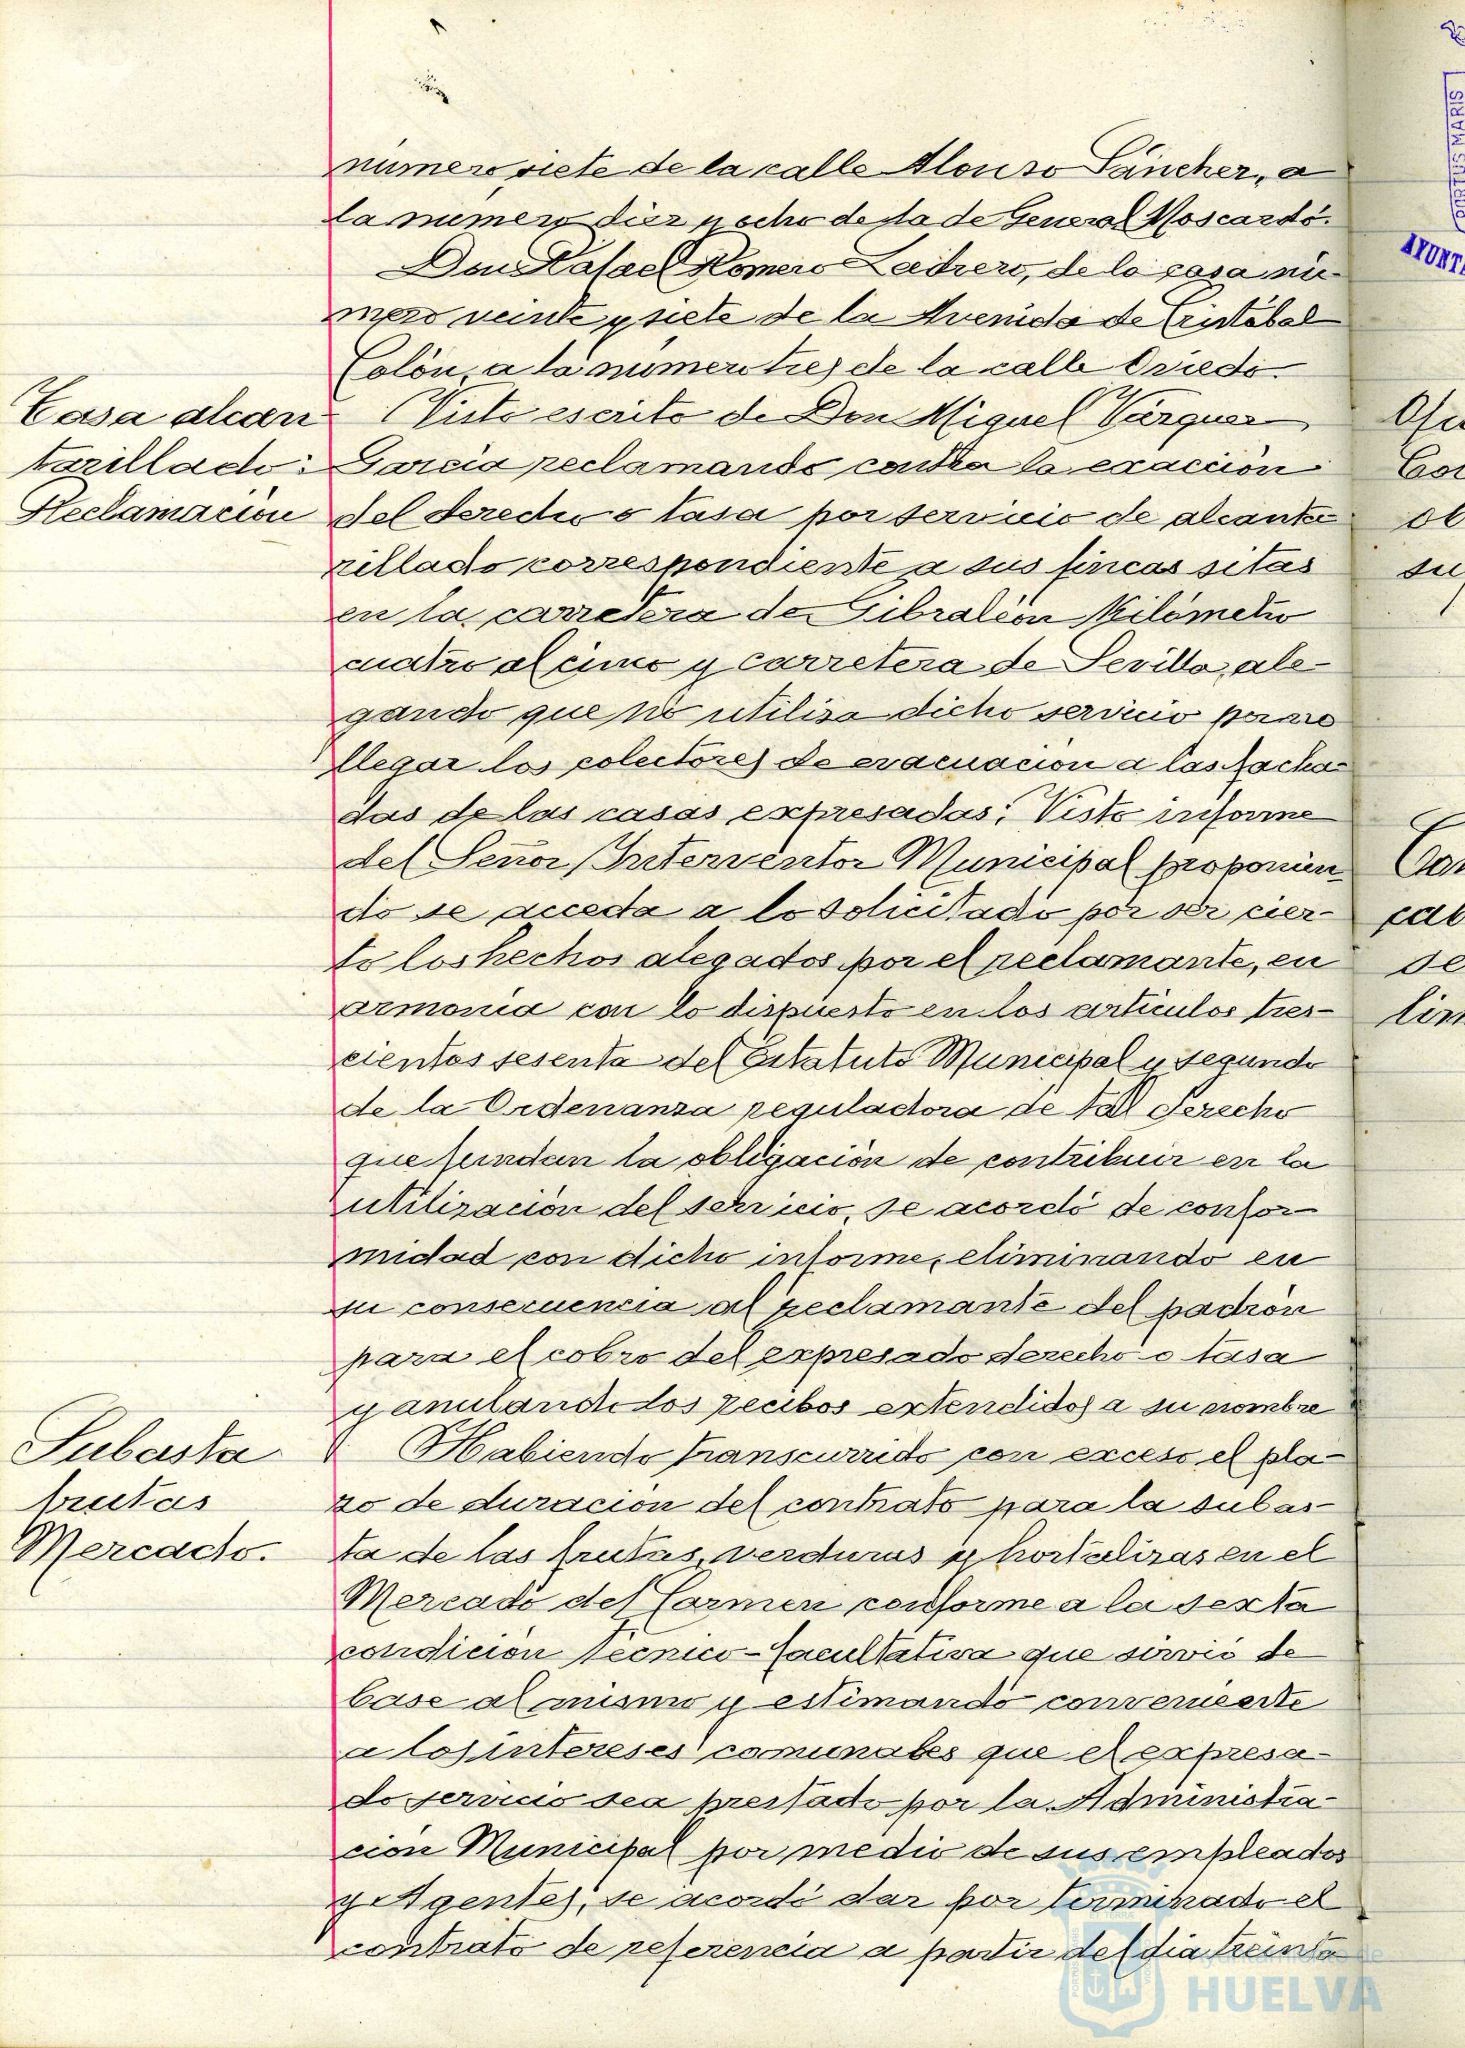 número siete de la calle Alonso Sánchez, a
la número diez y ocho de la de General Moscardó.
Don Rafael Romero Ladrero, de la casa nú-
mero veinte y siete de la Avenida de Cristóbal
Colón, a la número tres de la calle Oviedo.
Tasa alcan
tarillado:
Reclamación
Visto escrito de Don Miguel Várquez
García reclamando contra la exacción
del derecho o tasa por servicio de alcanta
rillado correspondiente a sus fincas sitas
en la carretera de Gibraleón Kilómetro
cuatro al cinco y carretera de Sevilla, ale-
gando que no utiliza dicho servicio por no
llegar los colectores de evacuación a las facha-
das de las casas expresadas; Visto informe
del Señor Interventor Municipal proponien-
do se acceda a lo solicitado por ser cier-
to los hechos alegados por el reclamante, en
armonía con lo dispuesto en los artículos tres-
cientos sesenta del Estatuto Municipal y segundo
de la Ordenanza reguladora de tal derecho
que fundan la obligación de contribuir en la
utilización del servicio, se acordó de confor-
midad con dicho informe, eliminando en
su consecuencia al reclamante del padrón
para el cobro del expresado derecho o tasa
y anulando los recibos extendidos a su nombre
Subasta
frutas
Mercado.
Habiendo transcurrido con exceso el pla-
zo de duración del contrato para la subas-
ta de las frutas, verduras y hortalizas en el
Mercado del Carmen conforme a la sexta
condición técnico-facultativa que sirvió de
base al mismo y estimando conveniente
a los intereses comunales que el expresa-
do servicio sea prestado por la Administra-
ción Municipal por medio de sus empleados
y Agentes, se acordó dar por terminado el
contrato de referencia a partir del día treinta
Ayuntamiento de
HUELVA
PORTUS MARIS
AYUNTA